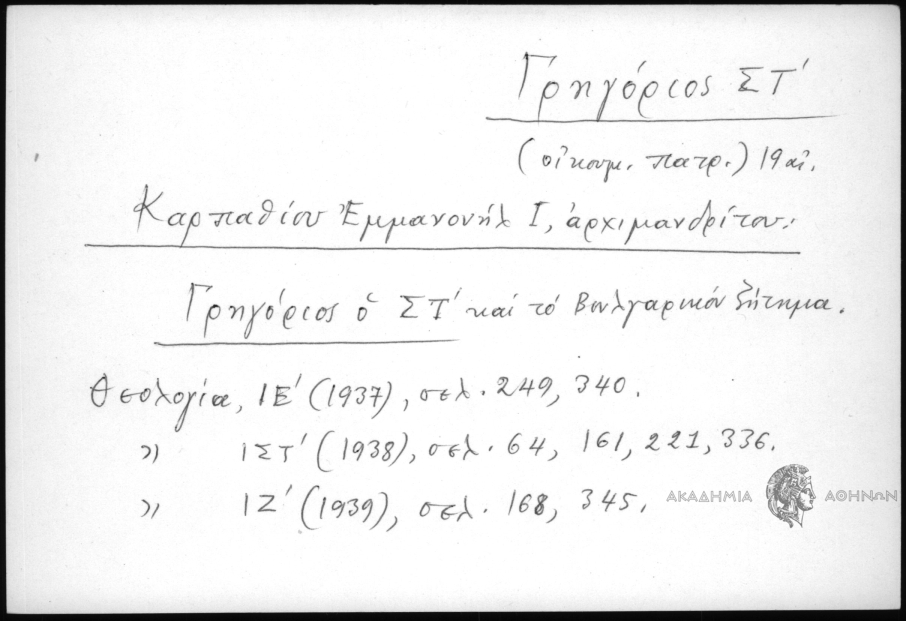 Γρηγόριος ΣΤ'
(οἰκουμ. πατρ.) 19 αἰ.
Καρπαθίου Ἐμμανουήλ Ι, ἀρχιμανδρίτου:
Γρηγόριος ὁ ΣΤ' καί τό Βουλγαρικόν ζήτημα.
Θεολογία, ΙΕ' (1937), σελ. 249, 340.
» ΙΣΤ' (1938), σελ. 64, 161, 221, 336.
» ΙΖ' (1939), σελ. 168, 345.
ΑΚΑΔΗΜΙΑ ΑΘΗΝΩΝ